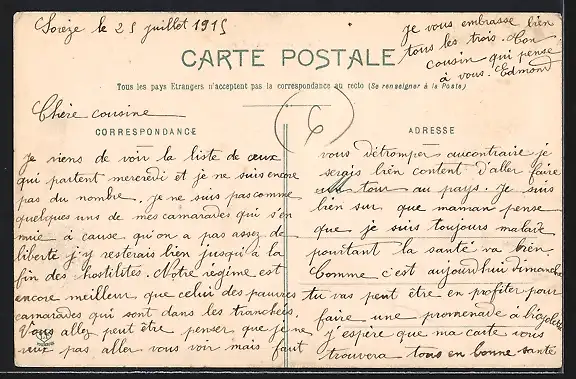 Sorèze le 25 juillet 1915
CARTE POSTALE
Tous les pays Etrangers n'acceptent pas la correspondance au recto (Se renseigner à la Poste)
Chère cousine
CORRESPONDANCE
Je viens de voir la liste de ceux
qui partent mercredi et je ne suis encore
pas du nombre. je ne suis pas comme
quelques uns de mes camarades qui s'en
nuie à cause qu'on a pas assez de
liberté j'y resterais bien jusqu'à la
fin des hostilités. Notre régime est
encore meilleur que celui des pauvres
camarades qui sont dans les tranchées.
Vous allez peut être penser que je ne
veux pas aller vous voir mais faut
6
ADRESSE
vous détromper aucontraire je
serais bien content d'aller faire
un tour au pays. Je suis
bien sur que maman pense
que je suis toujours malade
pourtant la santé va bien
Comme c'est aujourdhui dimanche
tu vas peut être en profiter pour
faire une promenade à bicyclette
j'espère que ma carte vous
trouvera tous en bonne santé
Je vous embrasse bien
tous les trois. Ton
cousin qui pense
à vous. Edmond